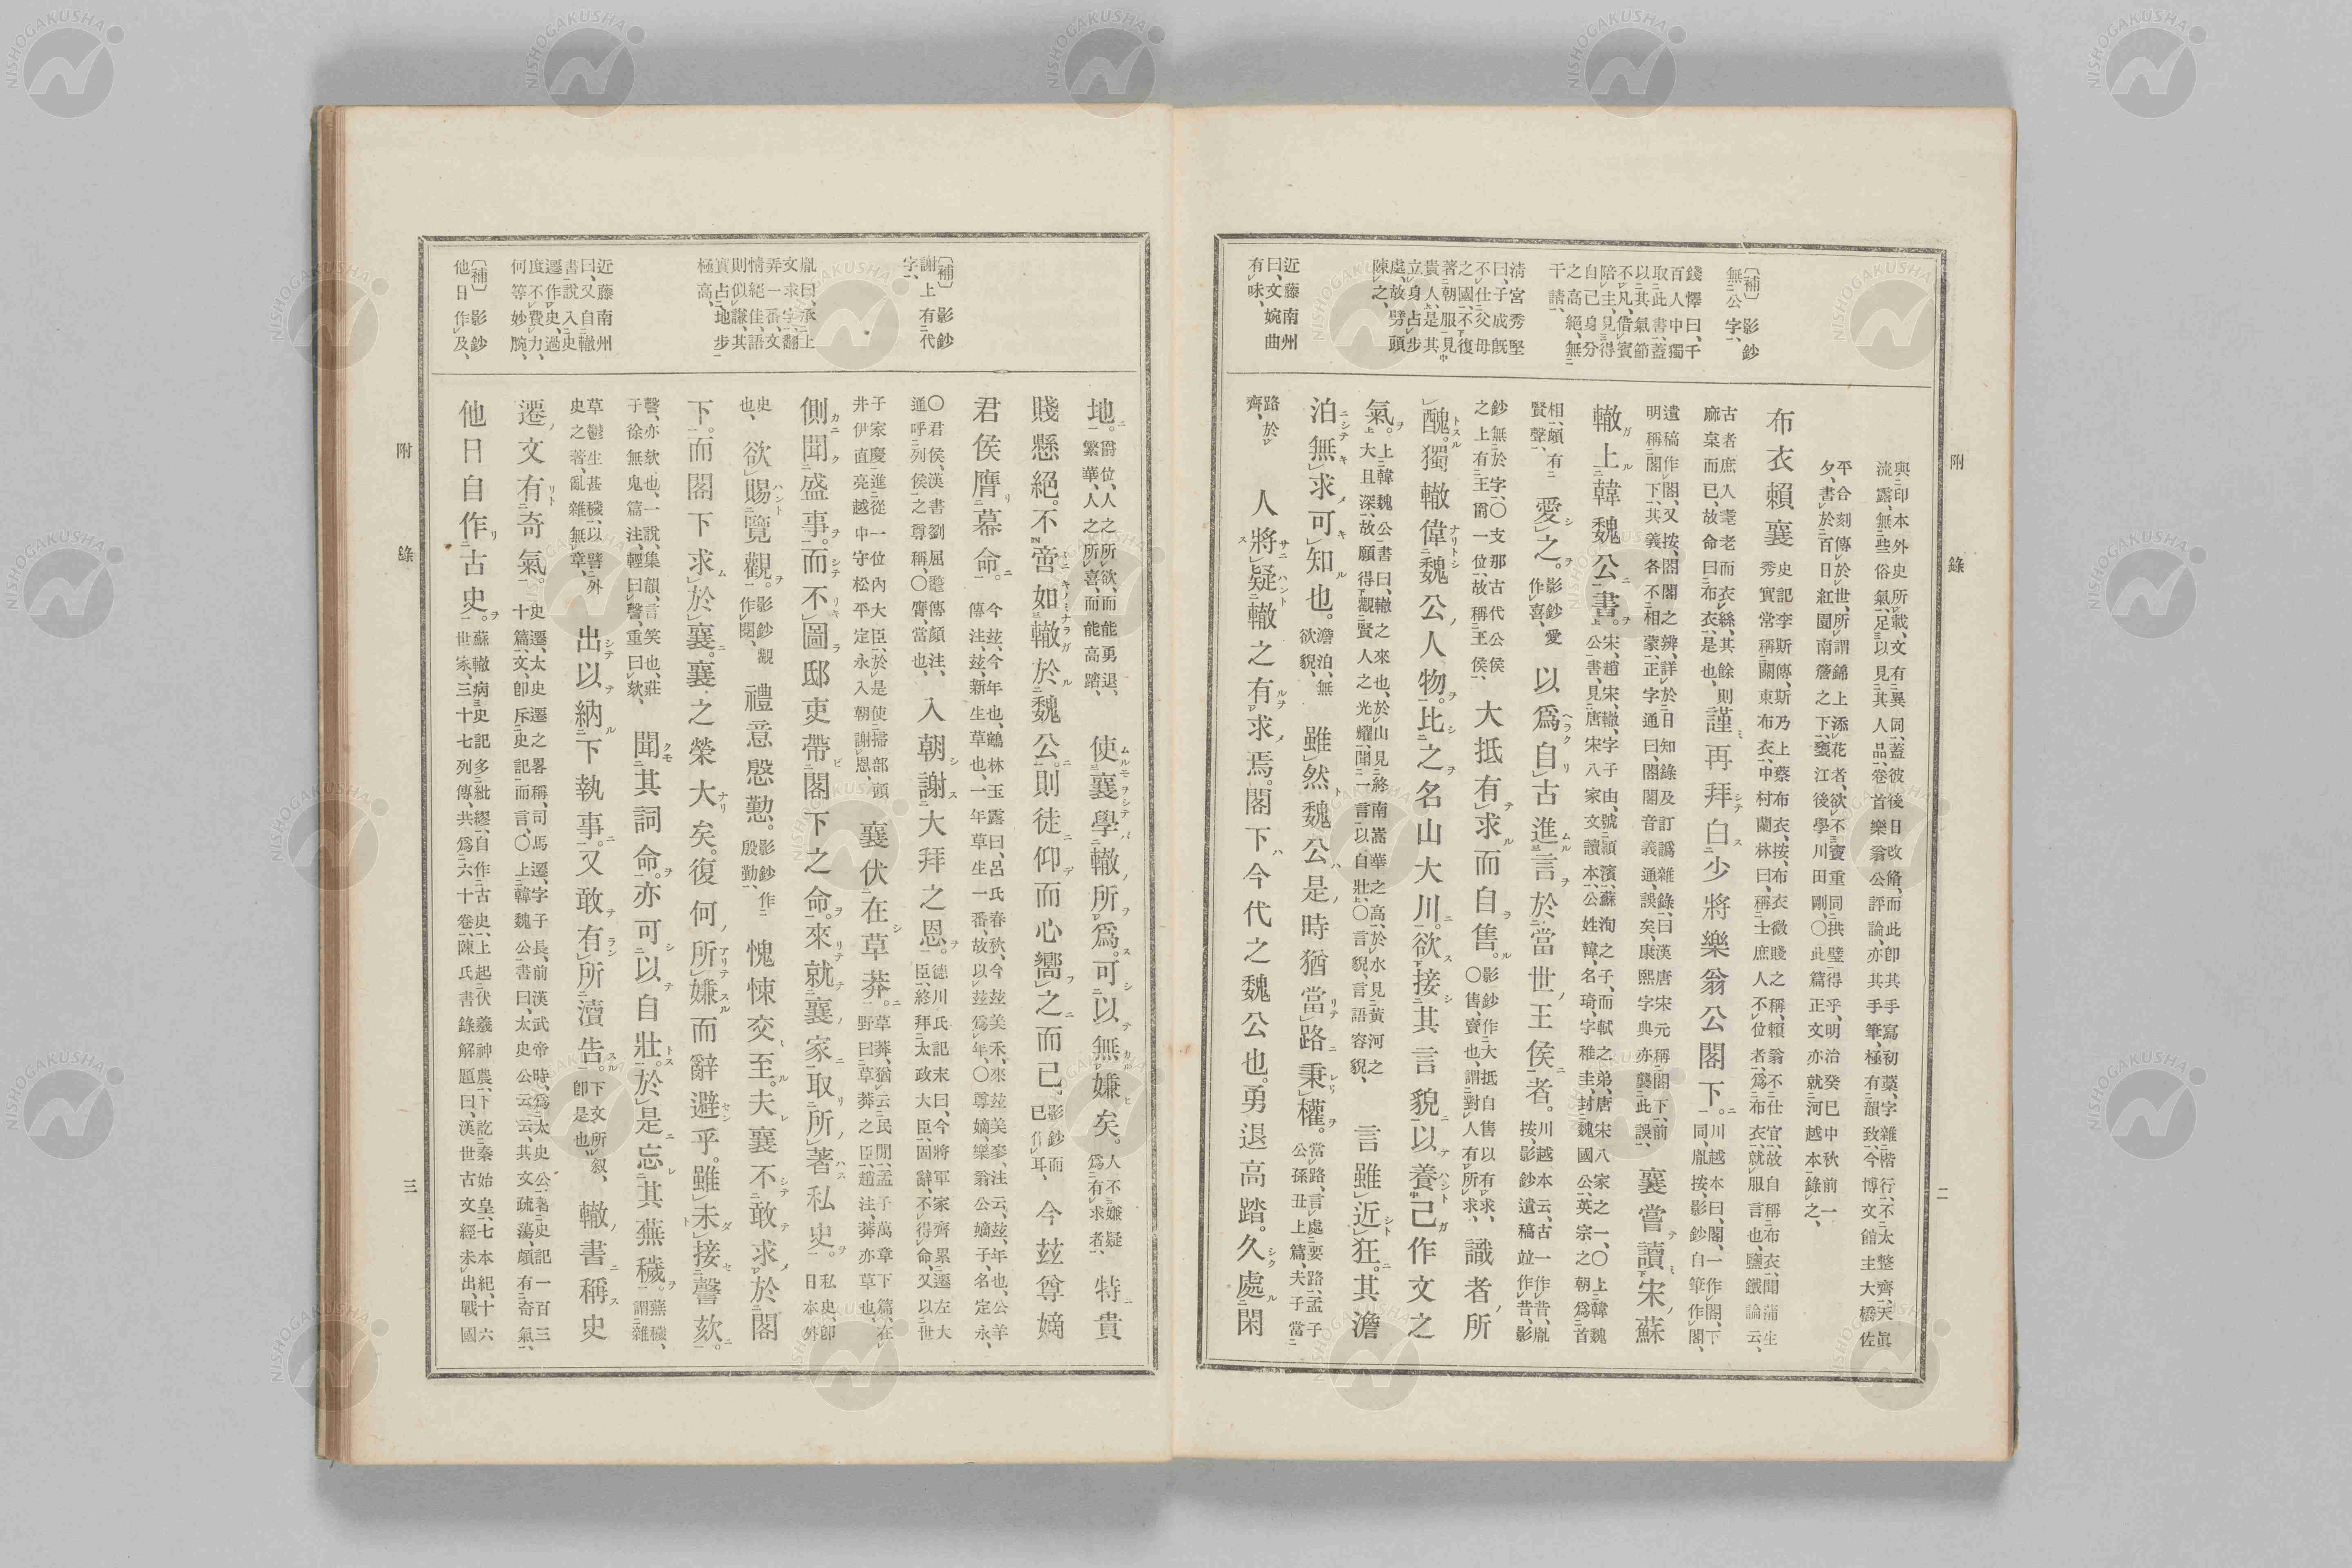 附錄
二
〔補〕影鈔
無公字、
錢懌曰、千
百人中獨
取此書、蓋
以其氣節
不凡、借賓
陪主、見得
自己身分
之高絕、無
干請、
清宮秀堅
曰、子成既
不仕父母
之國、不復
著朝服見
貴人、是其
立身占步
處、故劈頭
陳之、
近藤南州
曰、文婉曲
有味、
輿印本外史所載、文有異同、蓋彼後日改脩、而此卽其手寫初藁、字雜楷行、不太整齊、天眞
流露、無些俗氣、足以見其人品、卷首樂翁公評論、亦其手筆、極有韻致、今博文館主大橋佐
平合刻傳於世、所謂錦上添花者、欲不寶重同拱璧得乎、明治癸巳中秋前一
夕、書於百日紅園南簷之下、甕江後學川田剛、〇此篇正文亦就河越本錄之、
布衣賴襄史記李斯傳、斯乃上蔡布衣、按、布衣微賤之稱、賴翁不仕官、故自稱布衣、聞蒲生秀實常稱關東布衣、中村蘭林曰、稱士庶人不位者、爲布衣、就服言也、鹽鐵論云、
古者庶人耋老而衣絲、其餘則麻枲而已、故命曰布衣、是也、謹再拜白少將樂翁公閣下。川越本曰、閣、一作閤、下同、胤按、影鈔自筆作閤、
遺稿作閣、又按、閤閣之辨、詳於日知錄及訂譌雜錄、曰漢唐宋元稱閤下、前明稱閣下、其義各不相蒙、正字通曰、閤閣音義通、誤矣、康熙字典亦襲此誤、襄嘗讀宋蘇
轍上韓魏公書。宋、趙宋、轍、字子由、號潁濱、蘇洵之子、而軾之弟、唐宋八家之一、〇上韓魏公書、見唐宋八家文讀本、公姓韓、名琦、字稚圭、封魏國公、英宗之朝爲首
相、頗有賢聲、愛之。影鈔愛作喜、以爲自古進言於當世王侯者。按、川越本云、古一作昔、胤按、影鈔遺稿竝作昔、影
鈔無於字、〇支那古代公侯之上有王爵一位、故稱王侯、大抵有求而自售。影鈔作大抵自售以有求、〇售、賣也、謂對人有所求、識者所
醜。獨轍偉魏公人物。比之名山大川。欲接其言貌。以養己作文之
氣。上韓魏公書曰、轍之來也、於山見終南嵩華之高、於水見黃河之大且深、故願得觀賢人之光耀、聞一言以自壯、〇言貌、言語容貌、言雖近狂。其澹
泊無求可知也。澹泊、無欲貌、雖然魏公是時猶當路秉權。當路、言處要路、孟子公孫丑上篇、夫子當
路於齊、人將疑轍之有求焉。閣下今代之魏公也。勇退高踏。久處閑
〔補〕影鈔
謝上有代
字、
胤曰、承上
文求字、翻
弄一番、文
情絕佳、語
則似謙、其
實占地步
極高、
近藤南州
曰、又自轍
書說入史
遷作史、過
度不費力、
何等妙腕、
〔補〕影鈔
他日作及、
地。爵位、人之所欲、而能勇退、繁華、人之所喜、而能高踏、使襄學轍所爲。可以無嫌矣。人不嫌疑爲有求者、特貴
賤懸絕。不啻如轍於魏公。則徒仰而心嚮之而已。影鈔而已作耳、今玆尊嫡
君侯膺幕命。今玆、今年也、鶴林玉露曰、呂氏春秋、今玆美禾、來玆美麥、注云、玆、年也、公羊傳注、玆、新生草也、一年草生一番、故以玆爲年、〇尊嫡、樂翁公嫡子、名定永、
〇君侯、漢書劉屈氂傳顏注、通呼列侯之尊稱、〇膺、當也、入朝謝大拜之恩。德川氏記末曰、今將軍家齊累遷左大臣、終拜太政大臣、固辭、不得命、又以世
子家慶進從一位內大臣、於是使掃部頭井伊直亮越中守松平定永入朝謝恩、襄伏在草莽。草莽、猶云民間、孟子萬章下篇、在野曰草莽之臣、趙注、莽亦草也、
側聞盛事。而不圖邸吏帶閣下之命。來就襄家取所著私史。私史、卽日本外
史也、欲賜覽觀。影鈔觀作閱、禮意慇懃。影鈔作殷勤、愧悚交至。夫襄不敢求於閣
下。而閣下求於襄。襄之榮大矣。復何所嫌而辭避乎。雖未接謦欬。
謦、亦欬也、一說、集韻、言笑也、莊子徐無鬼篇注、輕曰謦、重曰欬、聞其詞命。亦可以自壯。於是忘其蕪穢。蕪穢、謂雜
草鬱生甚穢、以譬外史之著、亂雜無章、出以納下執事。又敢有所瀆告。下文所敍、卽是也、轍書稱史
遷文有奇氣。史遷、太史遷之畧稱、司馬遷、字子長、前漢武帝時、爲太史公、著史記一百三十篇、文、卽斥史記而言、〇上韓魏公書曰、太史公云云、其文疏蕩、頗有奇氣、
他日自作古史。蘇轍病史記多紕繆、自作古史、上起伏羲神農、下訖秦始皇、七本紀、十六世家、三十七列傳、共爲六十卷、陳氏書錄解題曰、漢世古文經未出、戰國
附錄
三
NISHOGAKUSHA